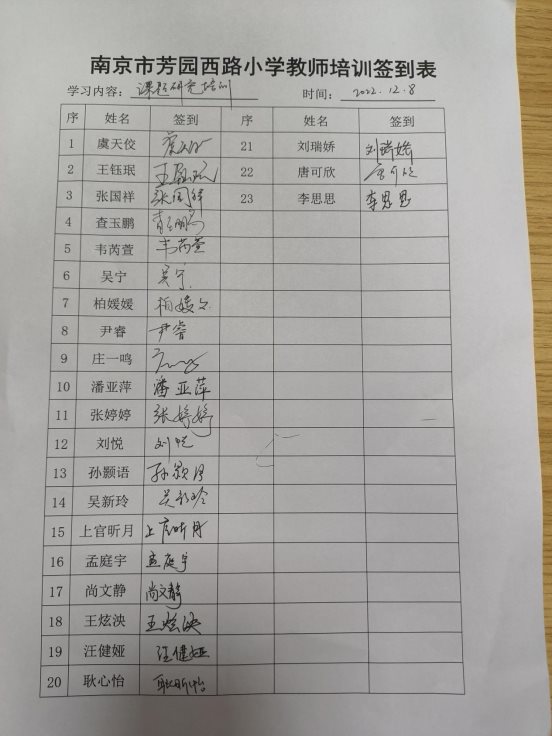 南京市芳园西路小学教师培训签到表
学习内容：课题研究培训 时间：2022.12.8
序 姓名 签到 序 姓名 签到
1 虞天佼 虞天佼 21 刘瑞娇 刘瑞娇
2 王钰珉 王钰珉 22 唐可欣 唐可欣
3 张国祥 张国祥 23 李思思 李思思
4 查玉鹏 查玉鹏
5 韦芮萱 韦芮萱
6 吴宁 吴宁
7 柏媛媛 柏媛媛
8 尹睿 尹睿
9 庄一鸣
10 潘亚萍 潘亚萍
11 张婷婷 张婷婷
12 刘悦 刘悦
13 孙颢语 孙颢语
14 吴新玲 吴新玲
15 上官昕月 上官昕月
16 孟庭宇 孟庭宇
17 尚文静 尚文静
18 王炫泱 王炫泱
19 汪健娅 汪健娅
20 耿心怡 耿昕怡